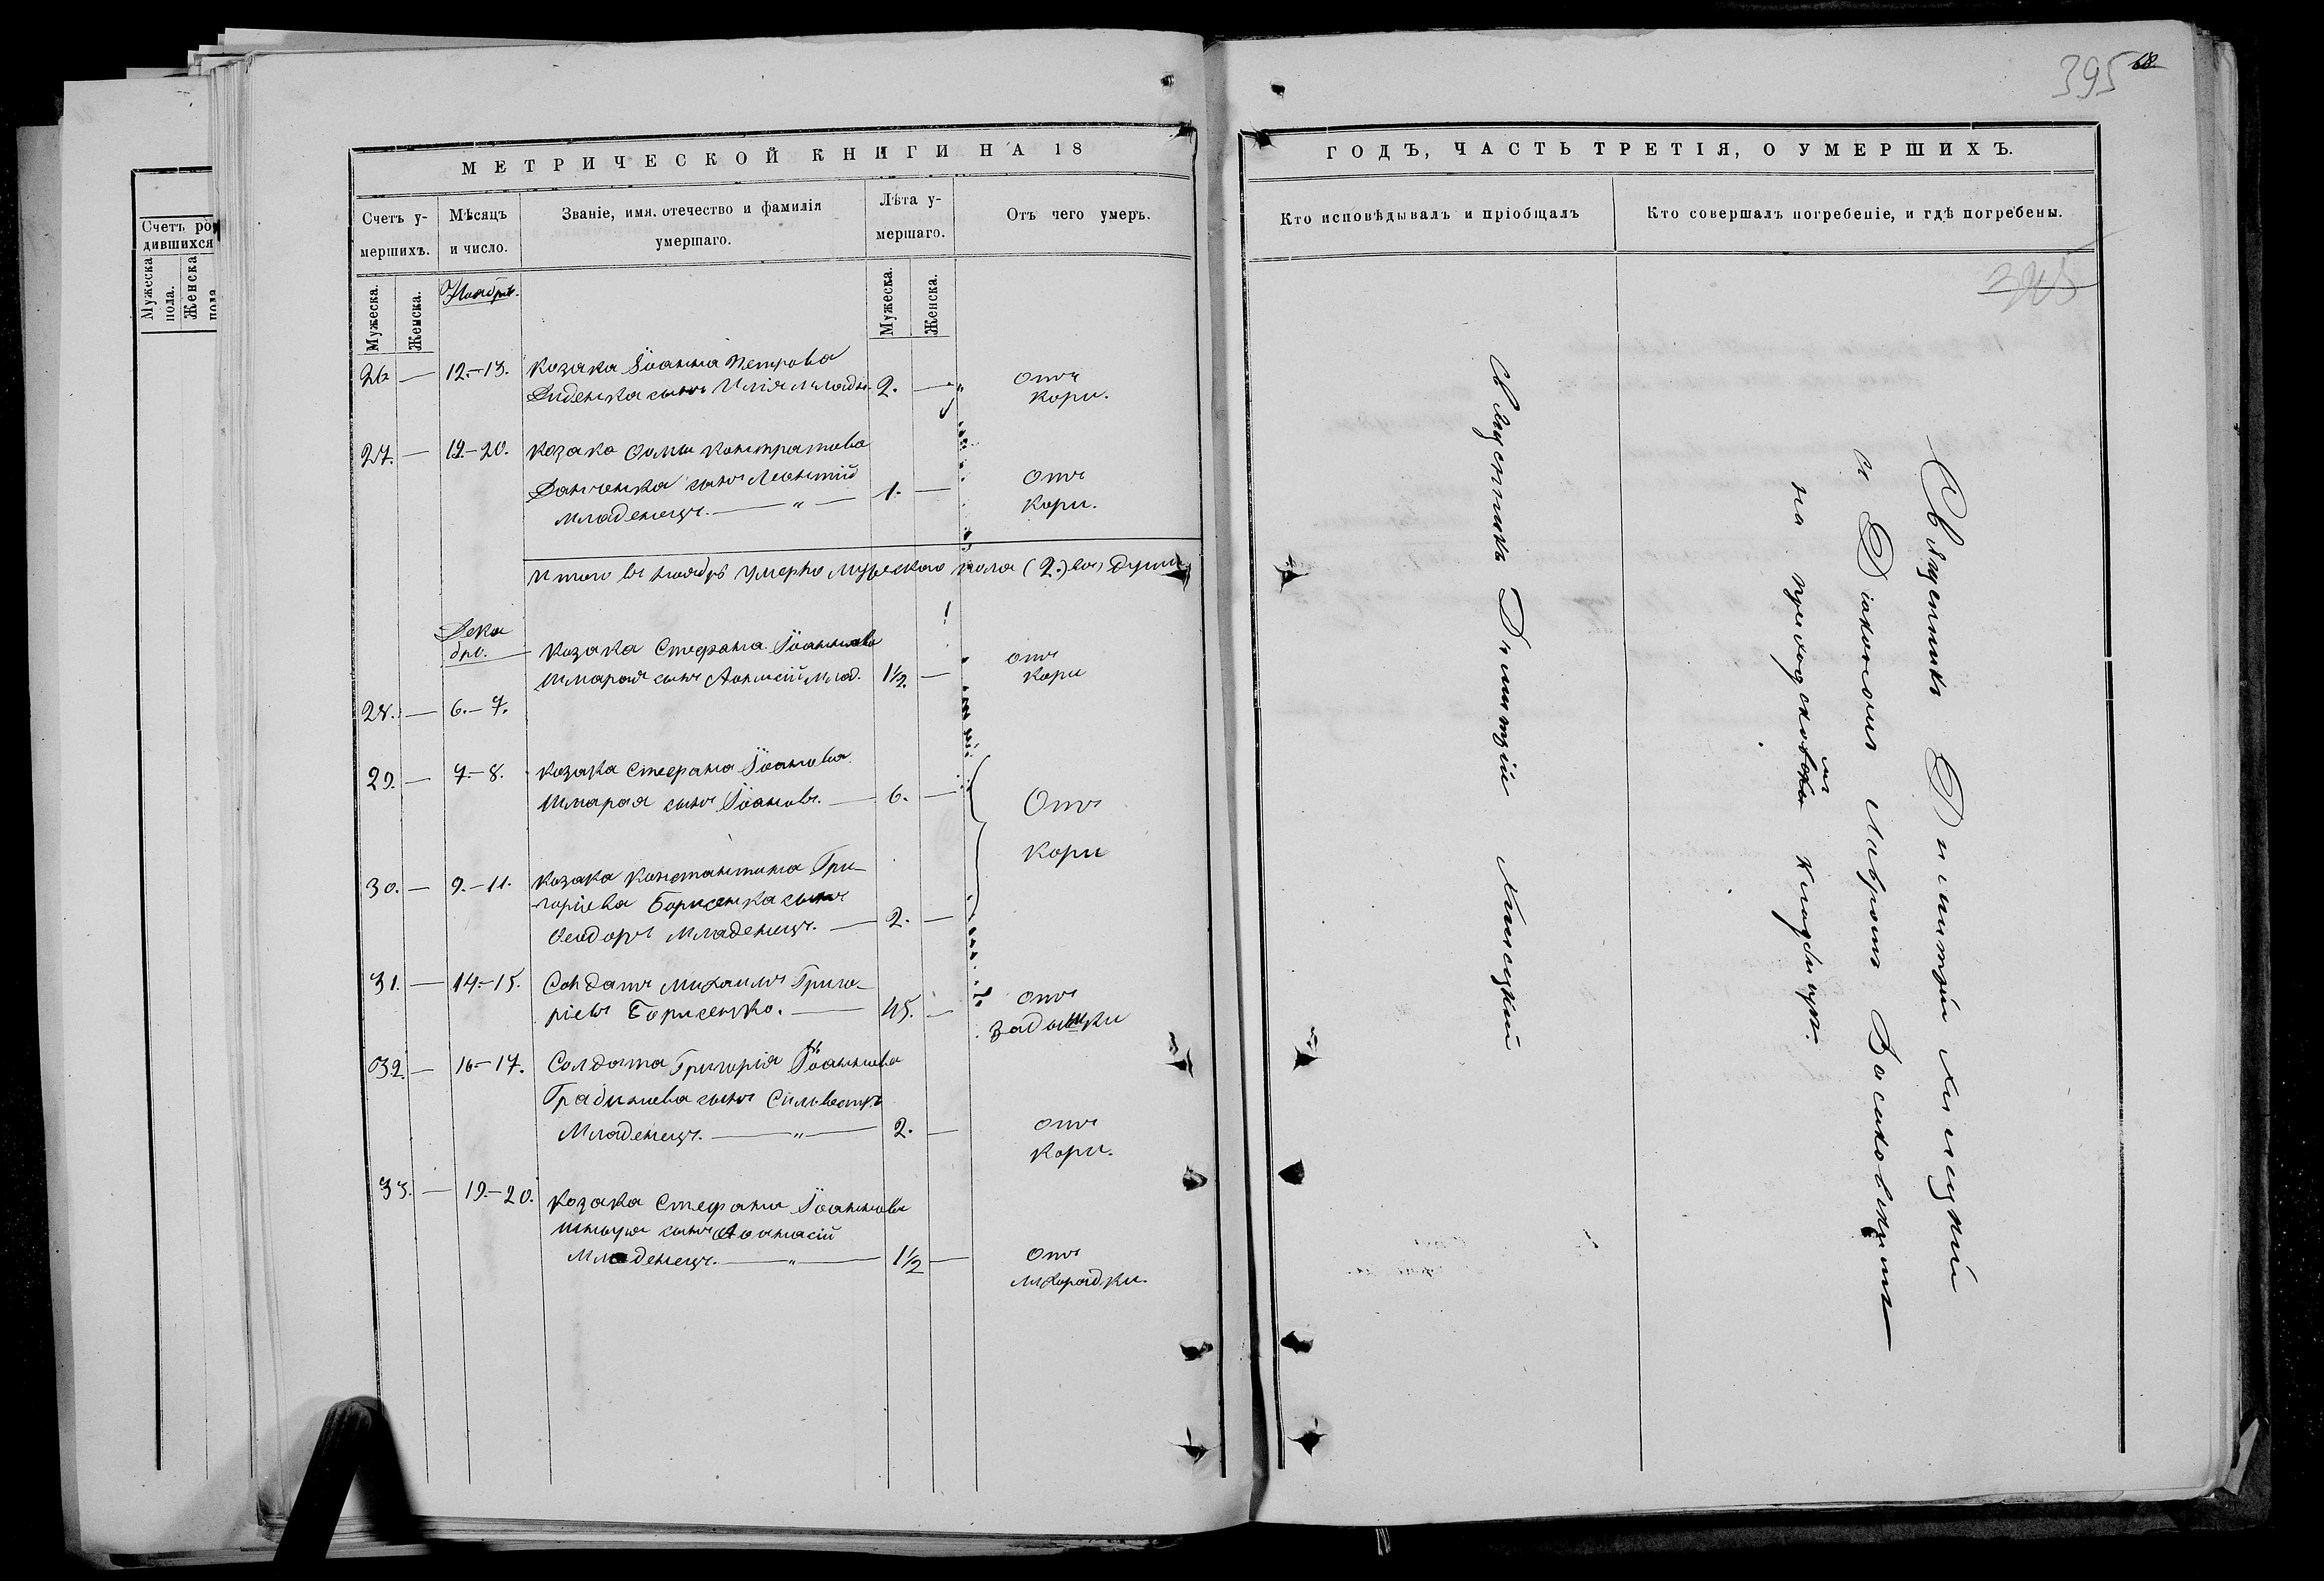 Счетъ ро
дившихся
Мужеска
пола.
Женска
пола
МЕТРИЧЕСКОЙ КНИГИ НА 18
Счетъ у-
мершихъ.
Мѣсяцъ
и число.
Званіе, имя, отечество и фамилія
умершаго.
Лѣта у-
мершаго.
Отъ чего умеръ.
Мужеска.
Женска.
Ноябрь.
Мужеска.
Женска.
26 — 12.–13. Козака Іоанна Петрова
Диденка сынъ Илія младн. 2. — " Отъ
кори.
27. — 19–20. Козака Ѳомы
сынъ Леонтій 1. — Отъ
младенецъ. — " — кори.
Итого въ ноябрѣ умерло мужескаго пола (2.) душ
Дека
брь.
Козака Стефана Іоаннова
Шмарая сынъ млад. 1½. — отъ
кори
28. — 6.–7.
29. — 7.–8. Козака Стефана Іоанова
Шмарая сынъ Іоаннъ. — 6. — Отъ
кори
30. — 9.–11. Козака Константина Гри-
горіева Борисенка сынъ
Ѳеодоръ младенецъ. — 2. —
31. — 14.–15. Солдатъ Михаилъ Григо-
ріевъ Борисенко. — 45. — отъ
задышки
32. — 16–17. Солдата Григорія Іоаннова
сынъ Сильвестръ
Младенецъ. — " — 2. — отъ
кори.
33. — 19.–20. Козака Стефана Іоаннова
сынъ Аѳанасій
Младенецъ. — " — 1½ — Отъ
лихорадки.
395 68
ГОДЪ, ЧАСТЬ ТРЕТІЯ, О УМЕРШИХЪ.
Кто исповѣдывалъ и пріобщалъ
Кто совершалъ погребеніе, и гдѣ погребены.
Священникъ Димитрій
Священникъ Димитрій
и Діакономъ
на приходскомъ кладбищѣ.